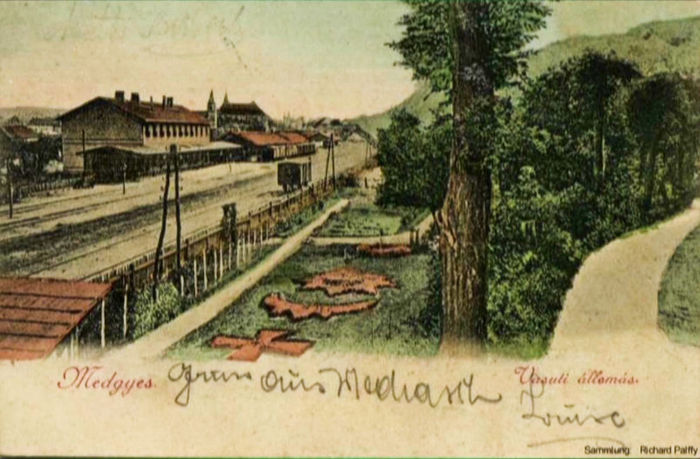 Medgyes.
Gruss aus Mediasch
Vasuti állomás.
Louise
Sammlung: Richard Palffy